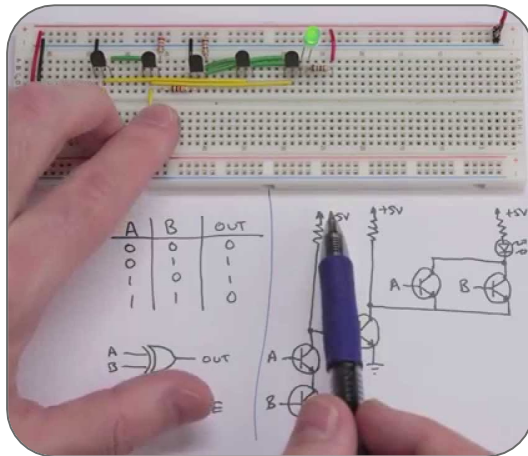 A B OUT
0 0 0
0 1 1
1 0 1
1 1 0
A
B
OUT
E
+5V
+5V
+5V
A
B
A
B